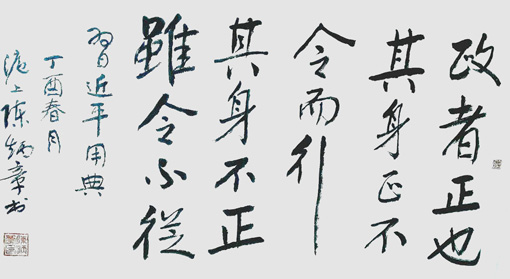 政者正也
其身正不
令而行
其身不正
雖令不從
習近平用典
丁酉春月
滬上陳炳章书